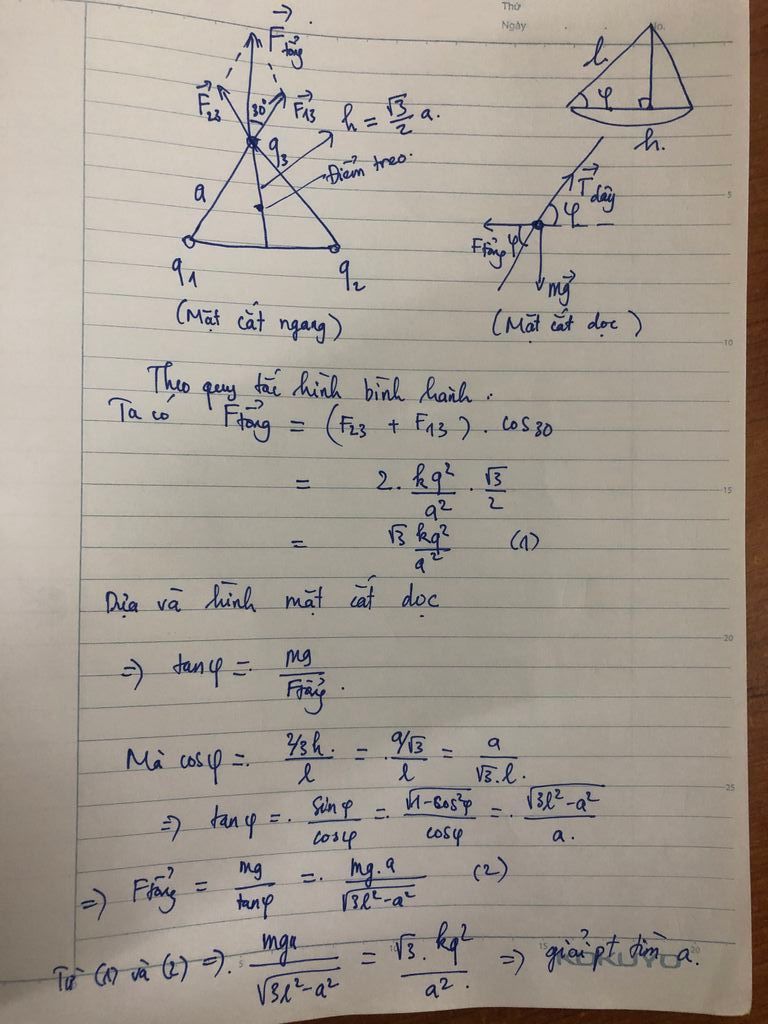 Thứ
Ngày
No.
F⃗tổng
F⃗23
30°
F⃗13
h = √3/2 a.
q3
Điểm treo.
a
q1
q2
(Mặt cắt ngang)
l
φ
h.
T⃗dây
φ
F⃗tổng
φ
mg⃗
(Mặt cắt dọc)
5
10
15
20
25
Theo quy tắc hình bình hành.
Ta có F⃗tổng = (F23 + F13) . cos30
= 2. kq²/a² . √3/2
= √3 kq²/a² (1)
Dựa và hình mặt cắt dọc
=> tanφ = mg/Ftổng.
Mà cosφ = 2/3h./l = a/√3/l = a/√3.l.
=> tanφ = sinφ/cosφ = √1-cos²φ/cosφ = √3l²-a²/a.
=> F⃗tổng = mg/tanφ = mg.a/√3l²-a² (2)
Từ (1) và (2) =>. mga/√3l²-a² = √3. kq²/a². => giải pt tìm a.
5
15
20
KOKUYO